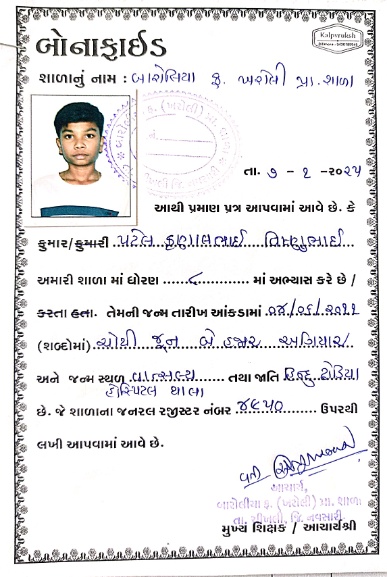 બોનાફાઈડ
Kalpvruksh
શાળાનું નામ : બારોલિયા ફ. ખરોલી પ્રા. શાળા
તા. ૭ - ૨ - ૨૦૨૫
આથી પ્રમાણ પત્ર આપવામાં આવે છે. કે
કુમાર/કુમારી પટેલ કૃણાલભાઈ વિષ્ણુભાઈ
અમારી શાળા માં ધોરણ ૮ માં અભ્યાસ કરે છે /
કરતા હતા. તેમની જન્મ તારીખ આંકડામાં ૦૪/૦૬/૨૦૧૧
(શબ્દોમાં) ચોથી જૂન બે હજાર અગિયાર
અને જન્મ સ્થળ વાત્સલ્ય તથા જાતિ હિન્દુ ઢોડિયા
હોસ્પિટલ થાલા
છે. જે શાળાના જનરલ રજીસ્ટર નંબર ૪૬૫૦ ઉપરથી
લખી આપવામાં આવે છે.
વતી
આચાર્ય,
બારોલીયા ફ. (ખરોલી) પ્રા. શાળા
તા. ચીખલી, જિ. નવસારી
મુખ્ય શિક્ષક / આચાર્યશ્રી